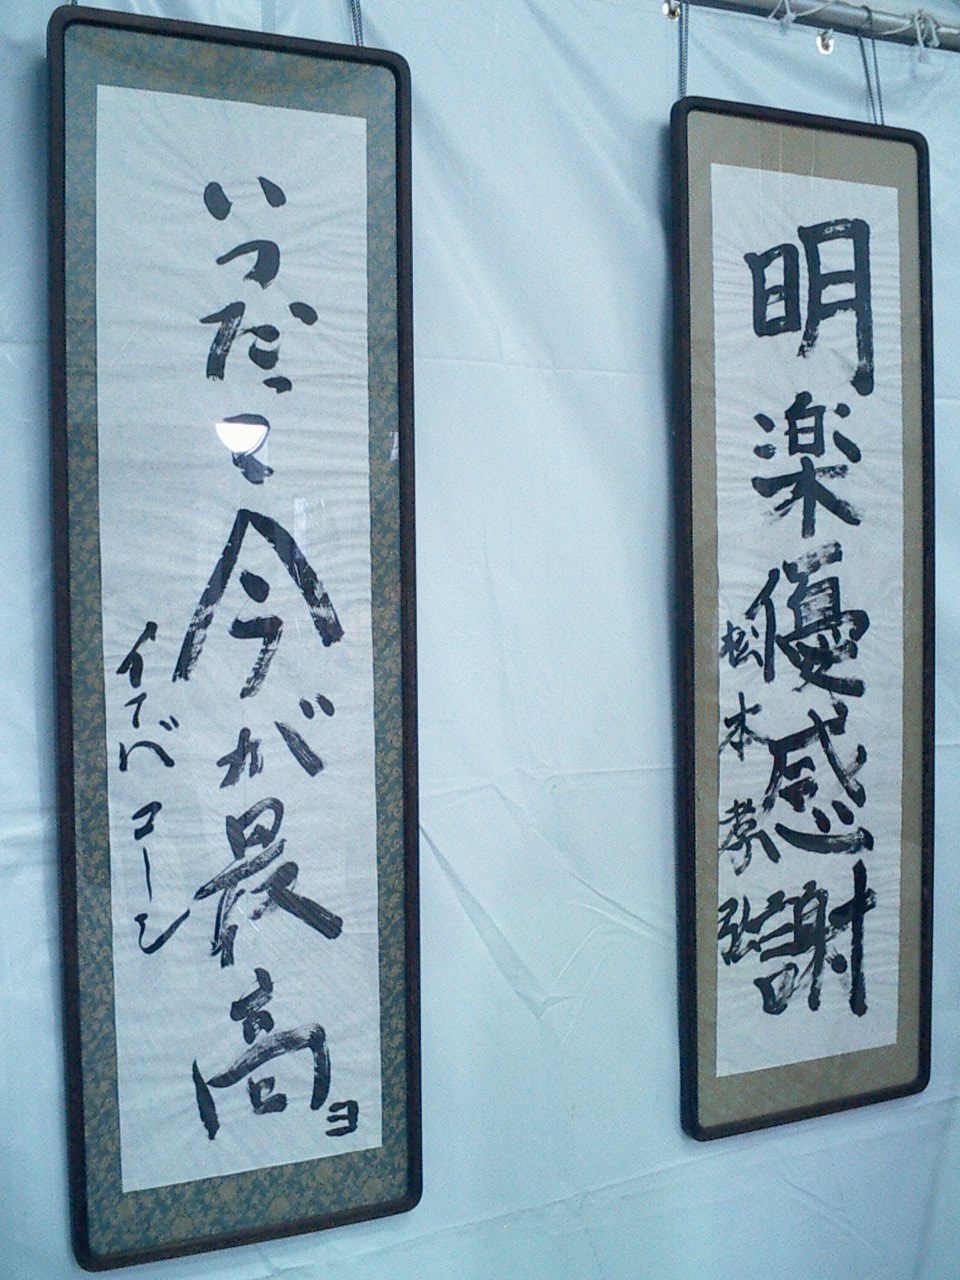 いつだって今が最高ヨ
イアベ コーシ
明楽優感謝
松本孝弘